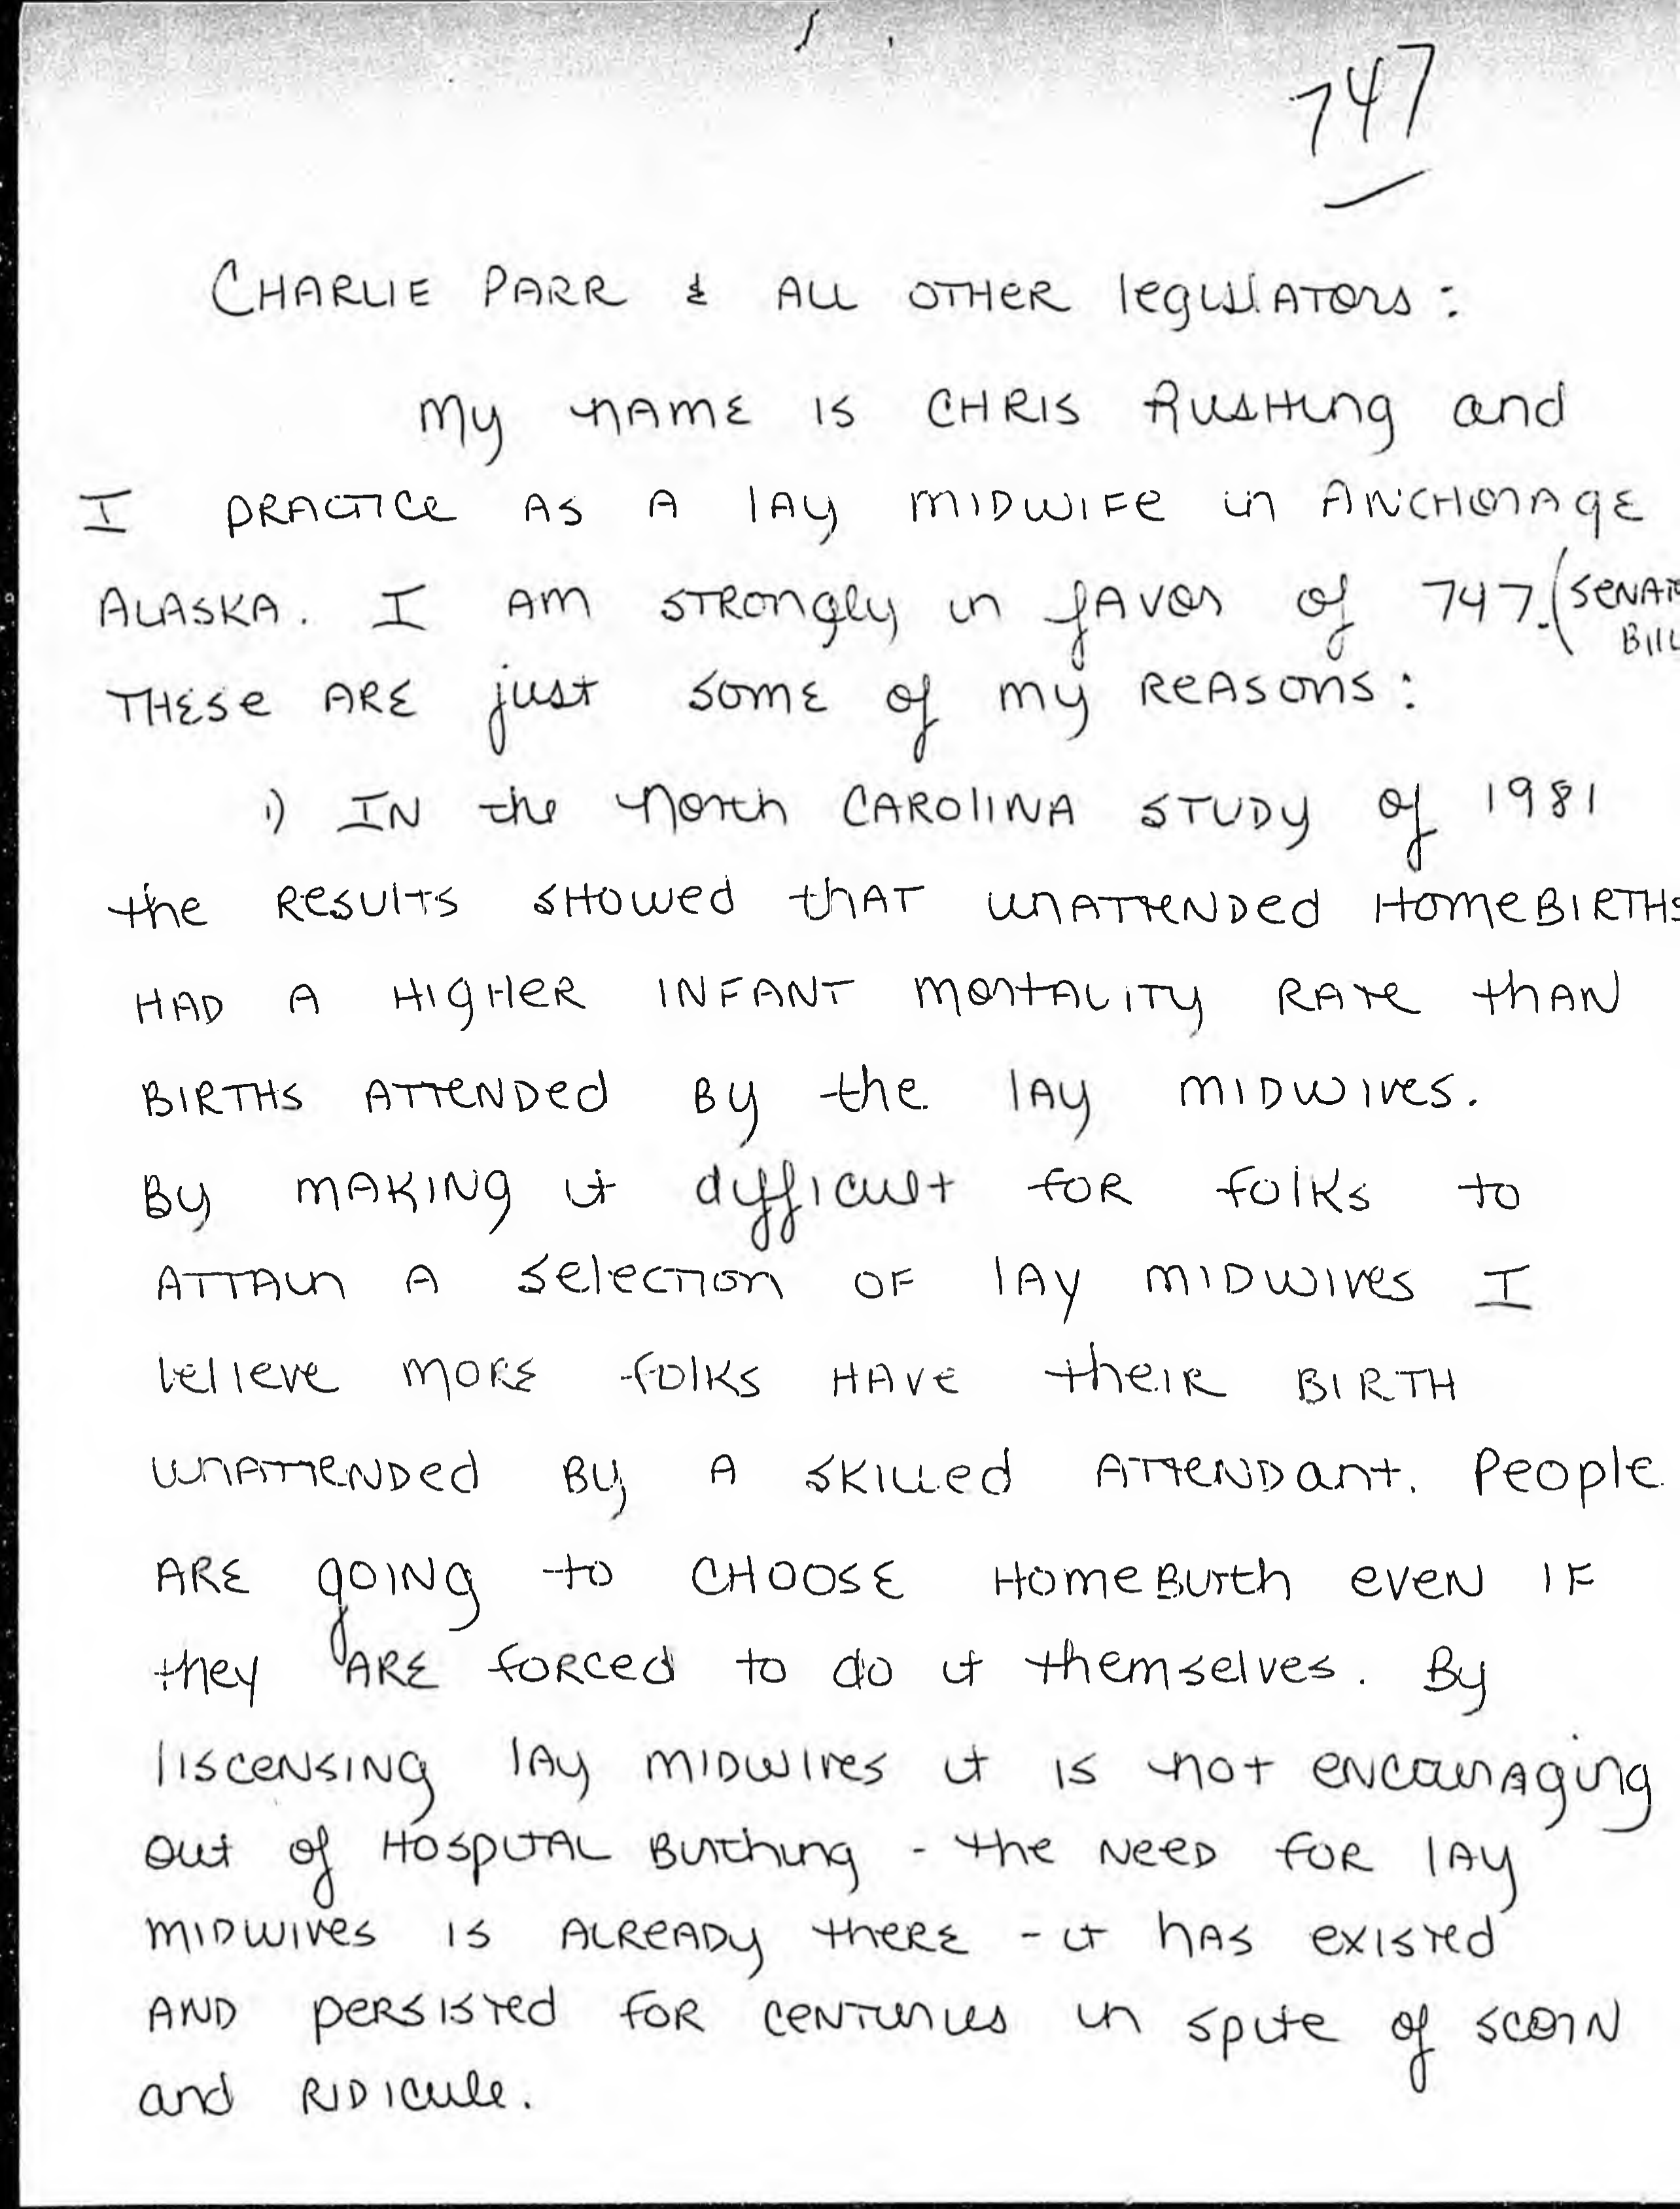 747
Charlie Parr & all other legislators:
My name is Chris Rushing and
I practice as a lay midwife in Anchorage
Alaska. I am strongly in favor of 747. (Senate
Bill
These are just some of my reasons:
1) In the North Carolina study of 1981
the results showed that unattended homebirths
had a higher infant mortality rate than
births attended by the lay midwives.
By making it difficult for folks to
attain a selection of lay midwives I
believe more folks have their birth
unattended by a skilled attendant. People
are going to choose homebirth even if
they are forced to do it themselves. By
liscensing lay midwives it is not encouraging
out of hospital birthing - the need for lay
midwives is already there - it has existed
and persisted for centuries in spite of scorn
and ridicule.